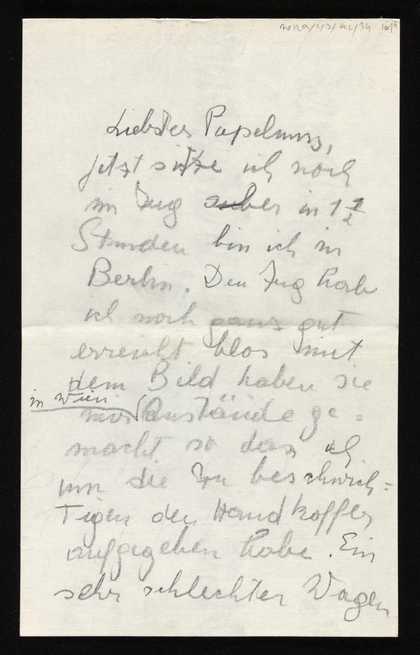 Liebster Papelmns,
jetzt sitze ich noch
im Zug aber in 1 1/2
Stunden bin ich in
Berlin. Den Zug habe
ich noch ganz gut
erreicht blos mit
dem Bild haben sie
in Wien
mir Anstände ge=
macht so das ich
um die zu beschwich=
tigen den Handkoffer
aufgegeben habe. Ein
sehr schlechter Wagen